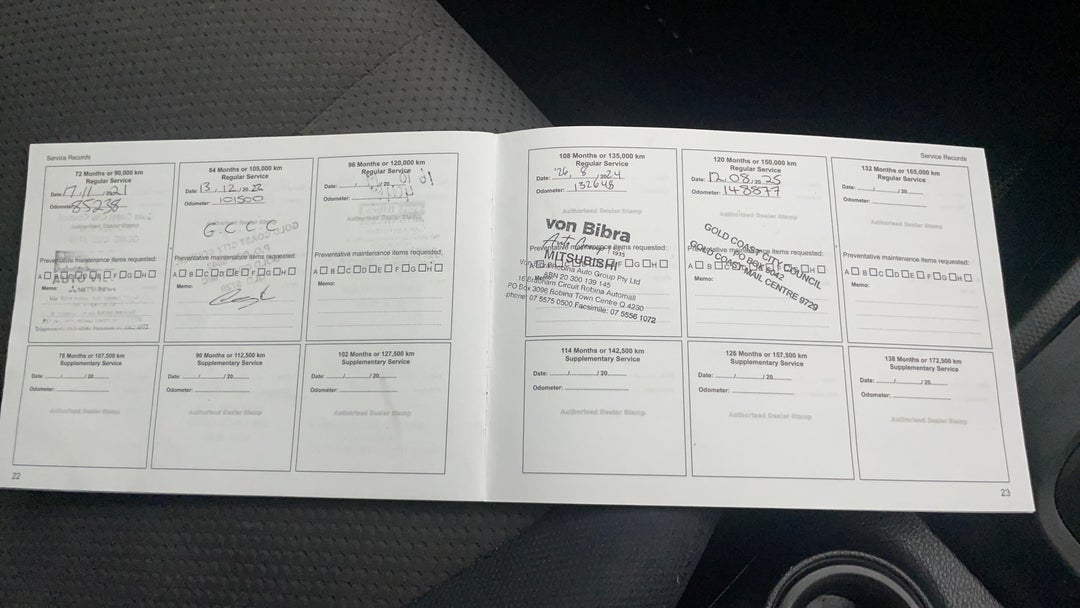 Service Records
72 Months or 90,000 km
Regular Service
Date: 17/11/2021
Odometer: 85238
Authorised Dealer Stamp
Preventative maintenance items requested:
A B C D E F G H
Memo:
84 Months or 105,000 km
Regular Service
Date: 13.12.2022
Odometer: 101500
Authorised Dealer Stamp
G.C.C.C
Preventative maintenance items requested:
A B C D E F G H
Memo:
96 Months or 120,000 km
Regular Service
Date: / /20
Odometer:
Authorised Dealer Stamp
Preventative maintenance items requested:
A B C D E F G H
Memo:
78 Months or 107,500 km
Supplementary Service
Date: / /20
Odometer:
Authorised Dealer Stamp
90 Months or 112,500 km
Supplementary Service
Date: / /20
Odometer:
Authorised Dealer Stamp
102 Months or 127,500 km
Supplementary Service
Date: / /20
Odometer:
Authorised Dealer Stamp
22
Service Records
108 Months or 135,000 km
Regular Service
Date: 26/8/2024
Odometer: 132648
Authorised Dealer Stamp
von Bibra
Auto Group 1915
Preventative maintenance items requested:
MITSUBISHI
A B C D E F G H
Robina Auto Group Pty Ltd
ABN 20 300 139 145
Memo:
Circuit Robina Automall
PO Box 3096 Robina Town Centre Q 4230
phone: 07 5575 0500 Facsimile: 07 5556 1072
120 Months or 150,000 km
Regular Service
Date: 12.08.2025
Odometer: 148877
Authorised Dealer Stamp
GOLD COAST CITY COUNCIL
PO BOX 5042
GOLD COAST MAIL CENTRE 9729
Preventative maintenance items requested:
A B C D E F G H
Memo:
132 Months or 165,000 km
Regular Service
Date: / /20
Odometer:
Authorised Dealer Stamp
Preventative maintenance items requested:
A B C D E F G H
Memo:
114 Months or 142,500 km
Supplementary Service
Date: / /20
Odometer:
Authorised Dealer Stamp
126 Months or 157,500 km
Supplementary Service
Date: / /20
Odometer:
Authorised Dealer Stamp
138 Months or 172,500 km
Supplementary Service
Date: / /20
Odometer:
Authorised Dealer Stamp
23